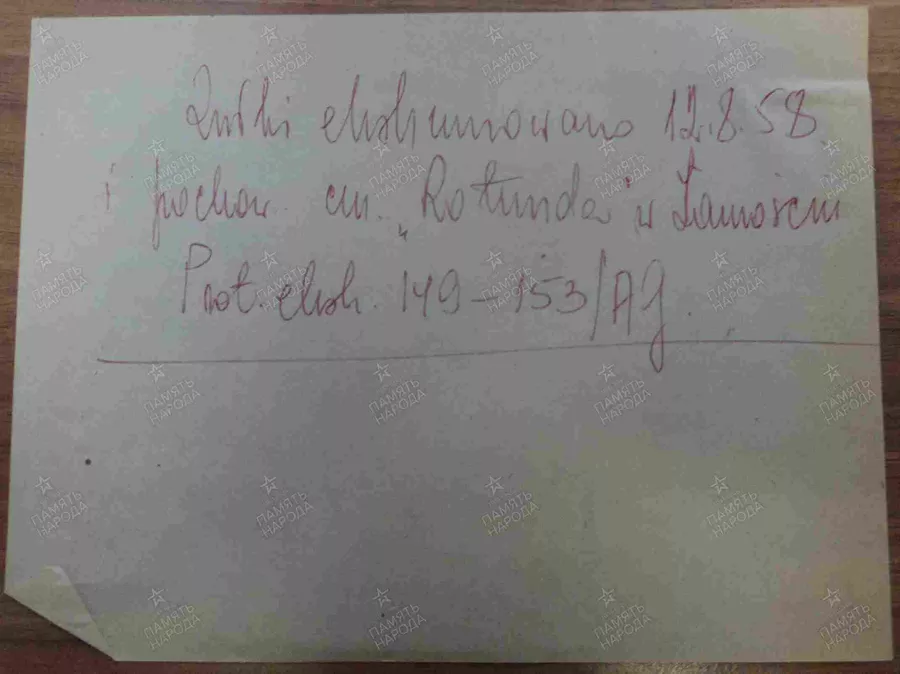 Zwłoki ekshumowano 12.8.58
i pochow. cm. „Rotunda" w Zamościu
Prot. eksh. 149-153/AG.
ПАМЯТЬ НАРОДА